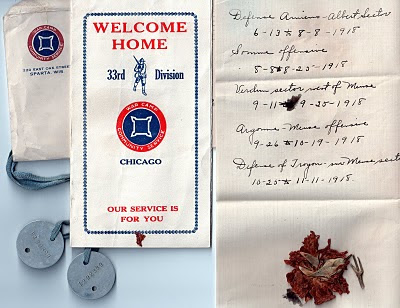 WAR CAMP
COMMUNITY SERVICE
SPARTA, WIS.
WELCOME
HOME
33rd Division
WAR CAMP
COMMUNITY SERVICE
CHICAGO
OUR SERVICE IS
FOR YOU
Defense Amiens-Albert Sector
6-13 to 8-8-1918
Somme offensive
8-8 to 8-20-1918
Verdun sector west of Meuse
9-11 to 9-25-1918
Argonne-Meuse offensive
9-26 to 10-19-1918
Defense of Troyon-sur Meuse, sector
10-25 to 11-11-1918.